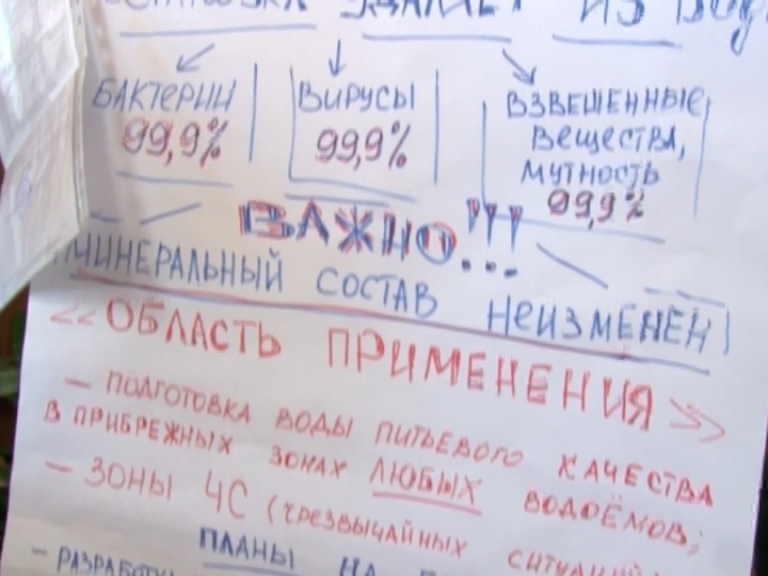 УДАЛЯЕТ ИЗ ВОДЫ
БАКТЕРИИ
99,9%
ВИРУСЫ
99,9%
ВЗВЕШЕННЫЕ
ВЕЩЕСТВА,
МУТНОСТЬ
99,9%
ВАЖНО!!!
МИНЕРАЛЬНЫЙ СОСТАВ НЕИЗМЕНЕН
<<ОБЛАСТЬ ПРИМЕНЕНИЯ>>
– ПОДГОТОВКА ВОДЫ ПИТЬЕВОГО КАЧЕСТВА
В ПРИБРЕЖНЫХ ЗОНАХ ЛЮБЫХ ВОДОЁМОВ;
– ЗОНЫ ЧС (ЧРЕЗВЫЧАЙНЫХ СИТУАЦИЙ)
ПЛАНЫ НА